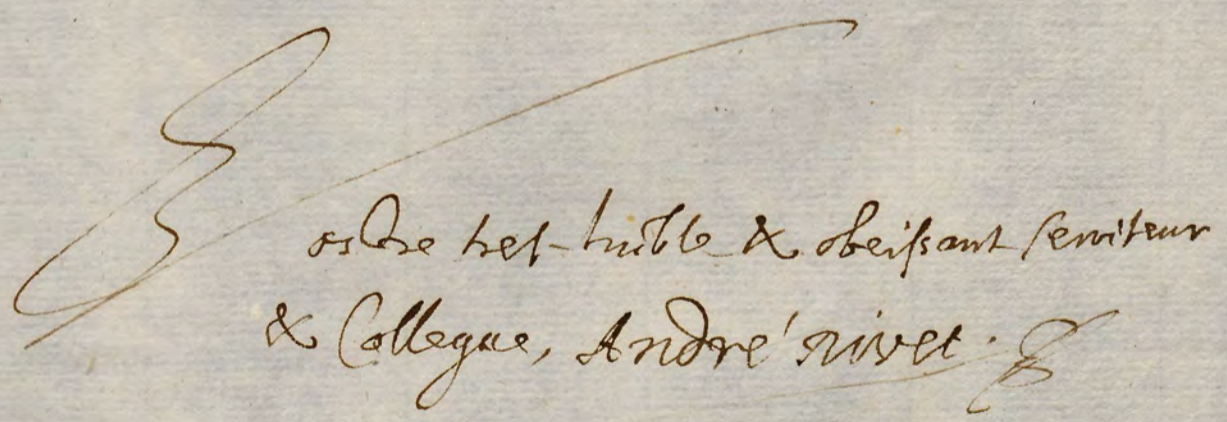 Vostre tres-huble & obeissant serviteur
& Collegue, André Rivet.